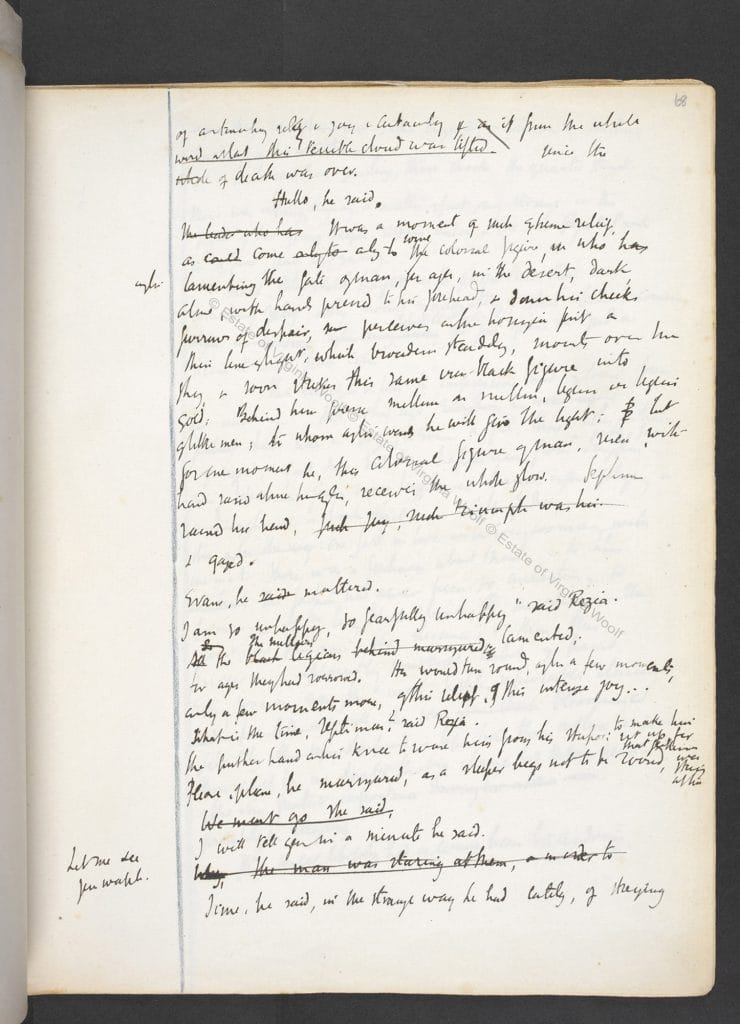 68
of astonishing relief & joy & certainly & as if from the whole
world what this terrible cloud was lifted. since the
whole of death was over.
Hullo, he said.
The leader who has It was a moment of such extreme relief,
as could come only to only to some the colossal figure, who has
lamenting the fate of man, for ages, in the desert, dark
alone, with hands pressed to his forehead, & down his cheeks
furrows of despair, perceives on the horizon first a
thin line of light, which broadens steadily, mounts over
& soon strikes this same black figure into
gold; Behind him million on million, legion on legion
of like men; to whom he will give the light; but
for one moment he, this colossal figure of man, with
hand raised receives the whole glow. Septimus
raised his hand, Such joy, such triumph was his
& gazed.
Evans, he said muttered.
I am so unhappy, so fearfully unhappy" said Rezia.
All the the millions black legions behind murmured; lamented;
for ages they had sorrowed. He would turn round, after a few moments,
only a few moments more, of this relief, of this intense joy...
What is the time, Septimus? said Rezia.
She put her hand on his knee to wake him from his stupor: to make him
Please, please, he murmured, as a sleeper begs not to be
We must go she said,
I will tell you in a minute he said.
Let me see
your watch.
Why, the man was staring at them, & in order to
Time, he said, in the strange way he had lately, of straying
© Estate of Virginia Woolf © Estate of Virginia Woolf © Estate of Virginia Woolf